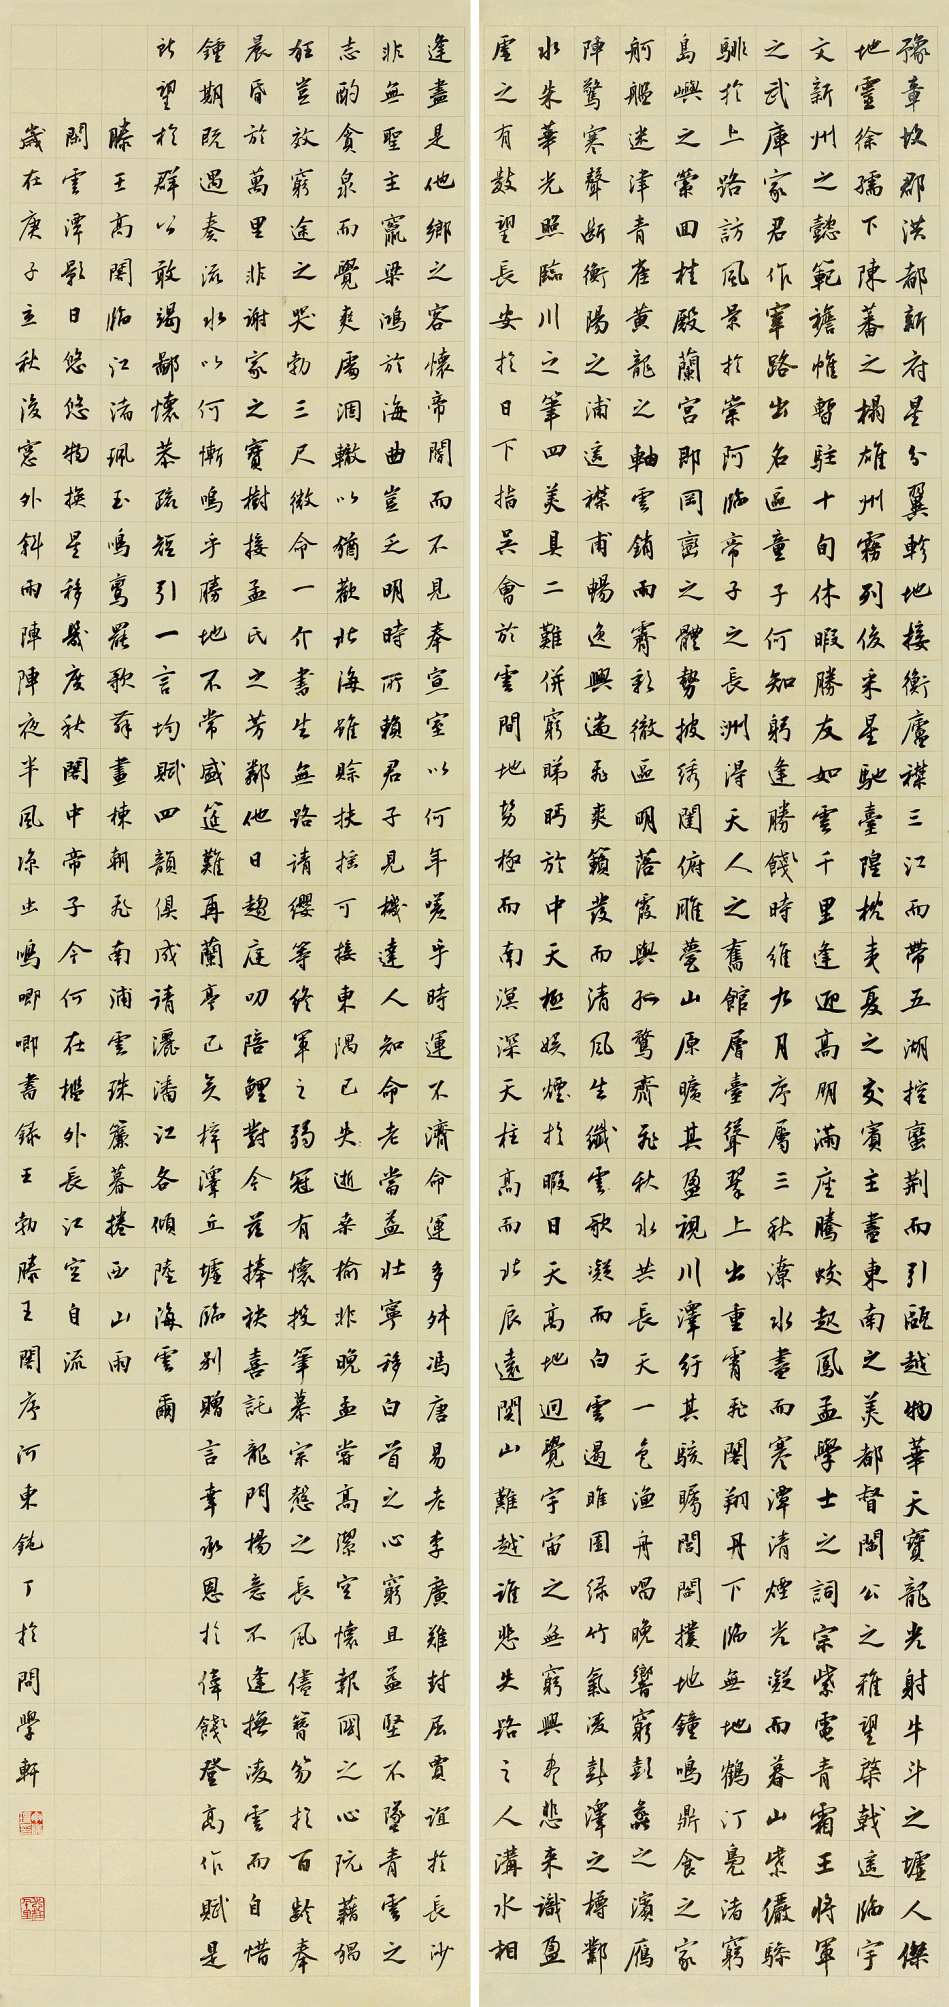 豫章故郡洪都新府星分翼軫地接衡廬襟三江而帶五湖控蠻荊而引甌越物華天寶龍光射牛斗之墟人傑
地靈徐孺下陳蕃之榻雄州霧列俊采星馳臺隍枕夷夏之交賓主盡東南之美都督閻公之雅望棨戟遙臨宇
文新州之懿範襜帷暫駐十旬休暇勝友如雲千里逢迎高朋滿座騰蛟起鳳孟學士之詞宗紫電青霜王將軍
之武庫家君作宰路出名區童子何知躬逢勝餞時維九月序屬三秋潦水盡而寒潭清煙光凝而暮山紫儼驂
騑於上路訪風景於崇阿臨帝子之長洲得天人之舊館層臺聳翠上出重霄飛閣翔丹下臨無地鶴汀鳧渚窮
島嶼之縈回桂殿蘭宮即岡巒之體勢披綉闥俯雕甍山原曠其盈視川澤紆其駭矚閭閻撲地鐘鳴鼎食之家
舸艦迷津青雀黃龍之軸雲銷雨霽彩徹區明落霞與孤鶩齊飛秋水共長天一色漁舟唱晚響窮彭蠡之濱雁
陣驚寒聲斷衡陽之浦遙襟甫暢逸興遄飛爽籟發而清風生纖雲歌凝而白雲遏睢園綠竹氣凌彭澤之樽鄴
水朱華光照臨川之筆四美具二難併窮睇眄於中天極娛煙於暇日天高地迥覺宇宙之無窮興盡悲來識盈
虛之有數望長安於日下指吳會於雲間地勢極而南溟深天柱高而北辰遠關山難越誰悲失路之人溝水相
逢盡是他鄉之客懷帝閽而不見奉宣室以何年嗟乎時運不濟命運多舛馮唐易老李廣難封屈賈誼於長沙
非無聖主竄梁鴻於海曲豈乏明時所賴君子見機達人知命老當益壯寧移白首之心窮且益堅不墜青雲之
志酌貪泉而覺爽處涸轍以猶歡北海雖賒扶搖可接東隅已失逝桑榆非晚孟嘗高潔空懷報國之心阮藉猖
狂豈效窮途之哭勃三尺微命一介書生無路請纓等終軍之弱冠有懷投筆慕宗愨之長風儘簪笏於百齡奉
晨昏於萬里非謝家之寶樹接孟氏之芳鄰他日趨庭叨陪鯉對今茲捧袂喜託龍門楊意不逢撫凌雲而自惜
鍾期既遇奏流水以何慚鳴乎勝地不常盛筵難再蘭亭已矣梓澤丘墟臨別贈言幸承恩於偉餞登高作賦是
所望於群公敢竭鄙懷恭疏短引一言均賦四韻俱成請灑潘江各傾陸海雲爾
滕王高閣臨江渚珮玉鳴鸞罷歌舞畫棟朝飛南浦雲珠簾暮捲西山雨
閑雲潭影日悠悠物換星移幾度秋閣中帝子今何在檻外長江空自流
歲在庚子立秋後窗外斜雨陣陣夜半風涼虫鳴唧唧書錄王勃滕王閣序河東鈍丁於問學軒